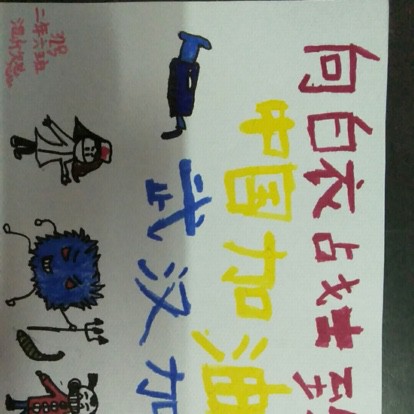 向白衣战士
中国加油
武汉加
二年六班